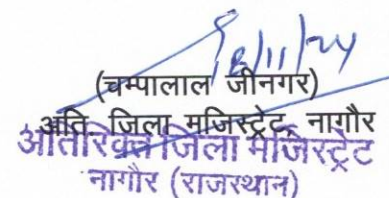 18/11/24
(चम्पालाल जीनगर)
अति. जिला मजिस्ट्रेट, नागौर
अतिरिक्त जिला मजिस्ट्रेट
नागौर (राजस्थान)